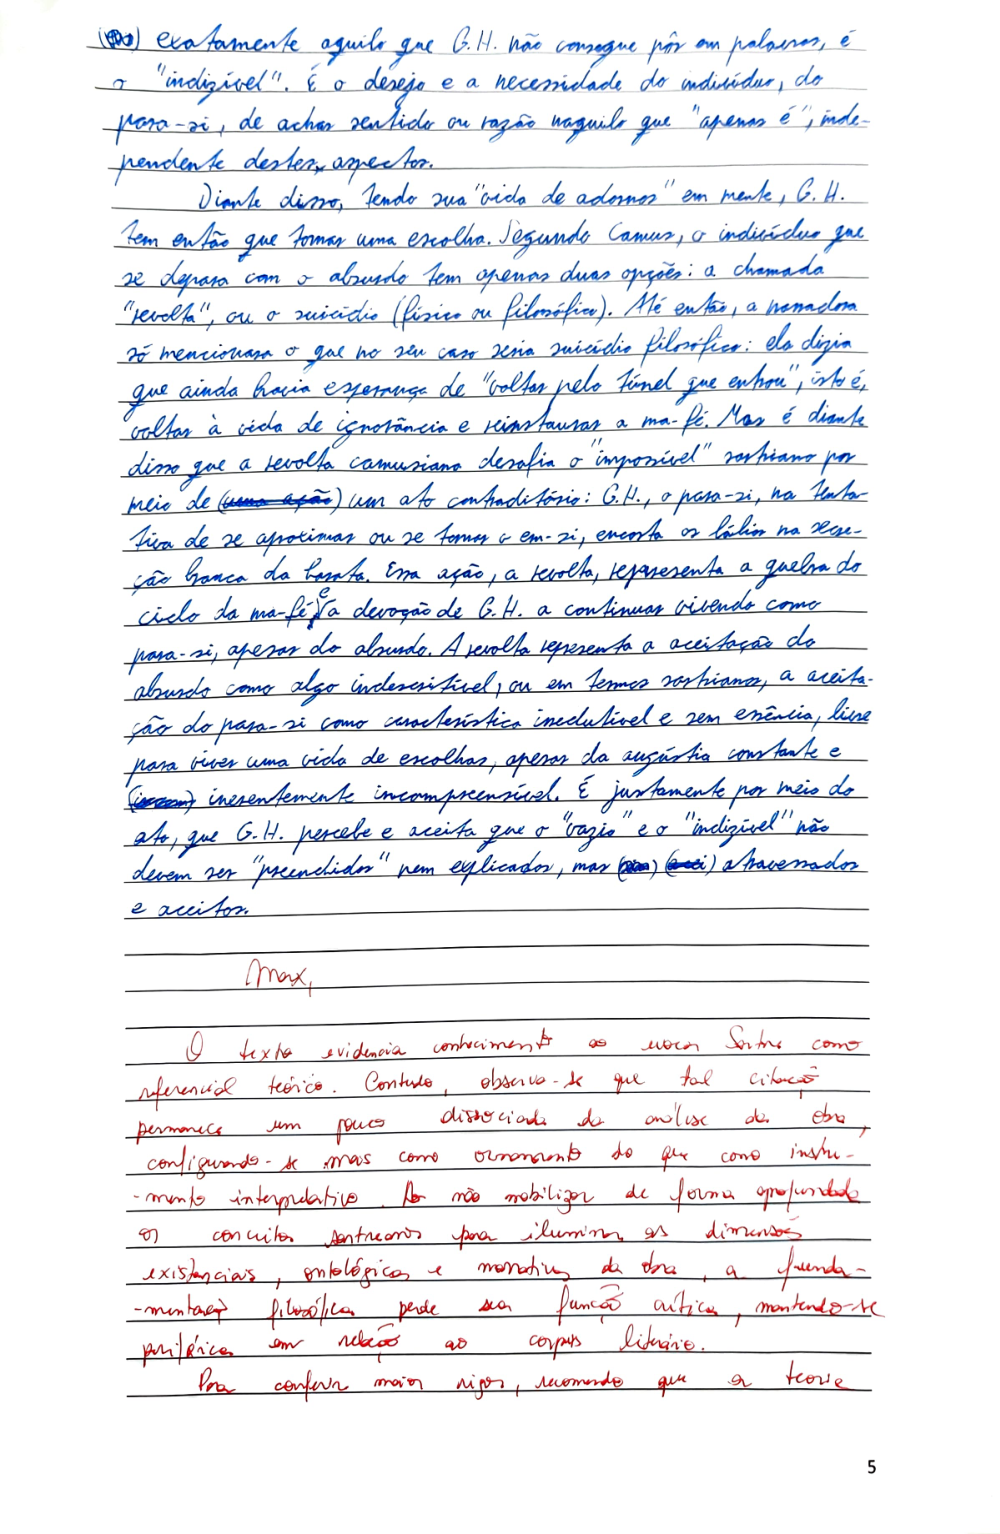 exatamente aquilo que G.H. não consegue pôr em palavras, é
o "indizível". É o desejo e a necessidade do indivíduo, do
para-si, de achar sentido ou razão naquilo que "apenas é", inde-
pendente destes aspectos.
Diante disso, tendo sua "vida de adornos" em mente, G.H.
tem então que tomar uma escolha. Segundo Camus, o indivíduo que
se depara com o absurdo tem apenas duas opções: a chamada
"revolta", ou o suicídio (físico ou filosófico). Até então, a narradora
só mencionara o que no seu caso seria suicídio filosófico: ela dizia
que ainda havia esperança de "voltar pelo túnel que entrou", isto é,
voltar à vida de ignorância e reinstaurar a ma-fé. Mas é diante
disso que a revolta camusiana desafia o "impossível" sartriano por
meio de (uma ação) um ato contraditório: G.H., o para-si, na tenta-
tiva de se aproximar ou se tornar o em-si, encosta os lábios na secre-
ção branca da barata. Essa ação, a revolta, representa a quebra do
ciclo da ma-fé, e a devoção de G.H. a continuar vivendo como
para-si, apesar do absurdo. A revolta representa a aceitação do
absurdo como algo indescritível, ou em termos sartrianos, a aceita-
ção do para-si como característica inedutível e sem essência, livre
para viver uma vida de escolhas, apesar da angústia constante e
inerentemente incompreensível. É justamente por meio do
ato, que G.H. percebe e aceita que o "vazio" e o "indizível" não
devem ser "preenchidos" nem explicados, mas atravessados
e aceitos.
Max,
O texto evidencia conhecimento ao evocar Sartre como
referencial teórico. Contudo, observa-se que tal citação
permanece um pouco dissociada da análise da obra,
configurando-se mais como ornamento do que como instru-
-mento interpretativo. Ao não mobilizar de forma aprofundada
os conceitos sartreanos para iluminar as dimensões
existenciais, ontológicas e narrativas da obra, a funda-
-mentação filosófica perde sua função crítica, mantendo-se
periférica em relação ao corpus literário.
Para conferir maior rigor, recomendo que a teoria
5